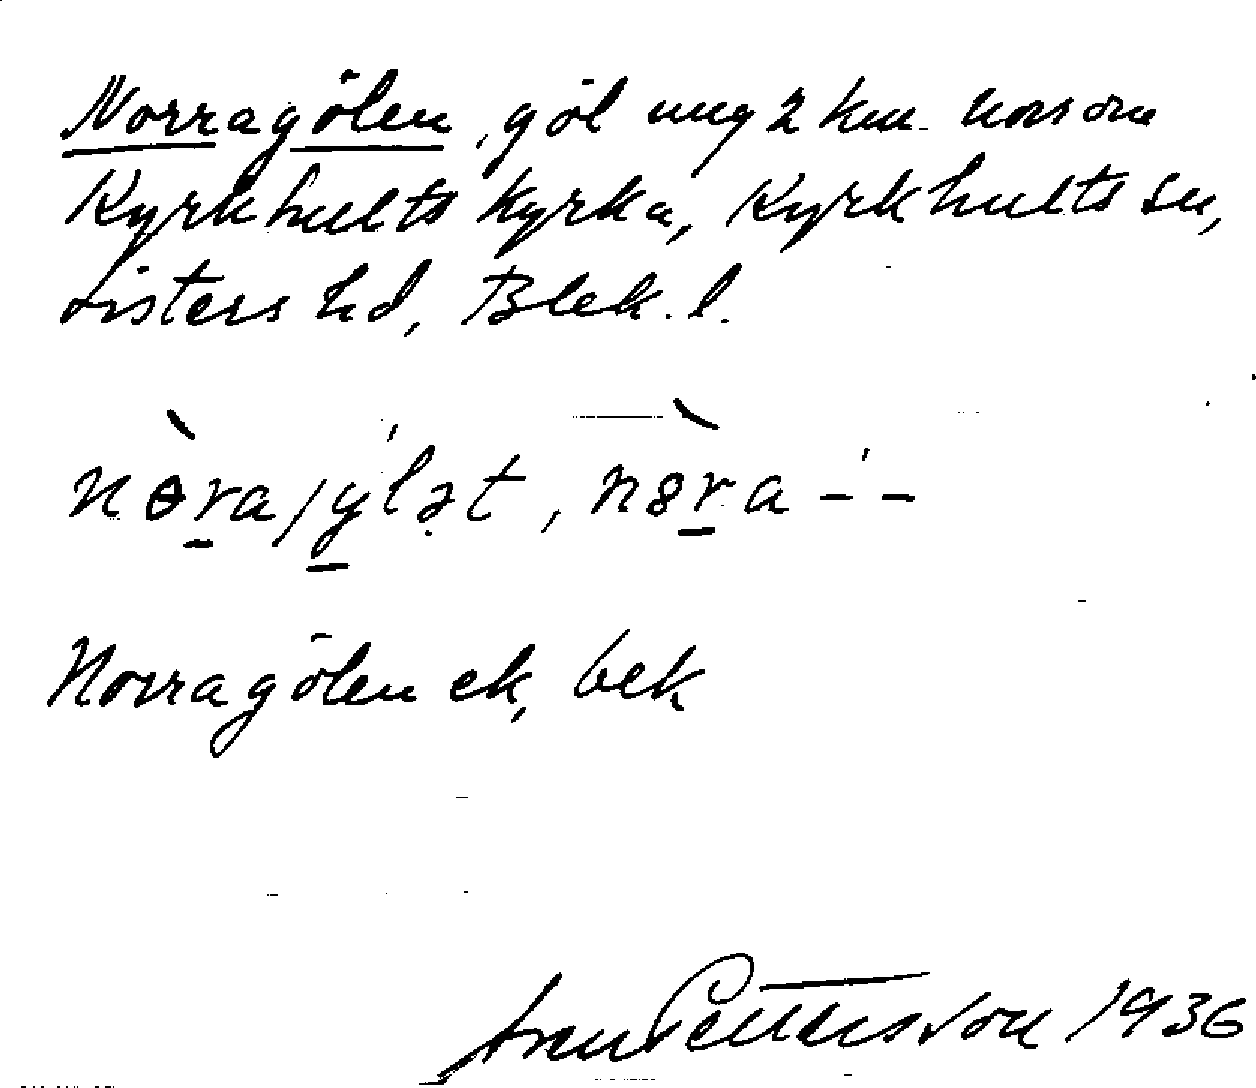 Norragölen, göl ung 2 km. norr om
Kyrkhults kyrka, Kyrkhults sn,
Listers hd, Blek. l.
nɵ̀ra/y̍lət, nȣ̀ra -̍ -
Norragölen ek, bek
Sven Pettersson 1936